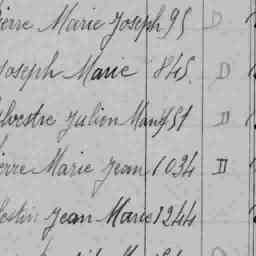 ierre Marie Joseph 95 D
Joseph Marie 845 D
ylvestre Julien Marie 951 D
ierre Marie Jean 1034 D
lestin Jean Marie 1244